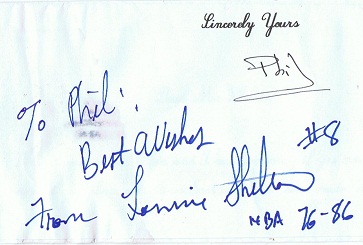 Sincerely Yours
Phil
To Phil!
Best Wishes
#8
From Lonnie Shelton
NBA 76-86